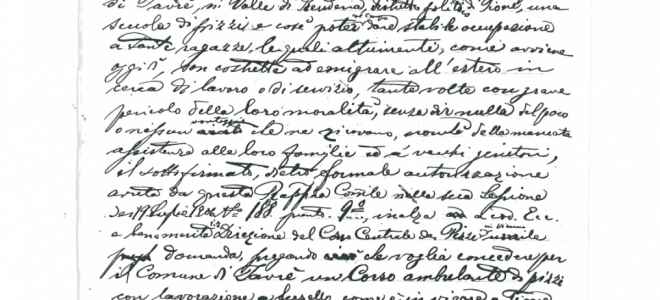 di Javrè, in Valle di Rendena, distretto polit. di Tione, una
scuola di pizzi, e così poter dare stabile occupazione
a tante ragazze, le quali altrimenti, come avviene
oggidì, son costrette ad emigrare all'estero in
cerca di lavoro o di servizio, tante volte con grave
pericolo della loro moralità, senza dir nulla del poco
o nessun che ne ricavano, nonchè della mancata
assistenza alle loro famiglie ed a' vecchi genitori,
il sottofirmato, dietro formale autorizzazione
avuta da questa Rappza Comle nella sua Sessione
19 N° 188 punto 9°, inalza a Ecc.
e benemerita Direzione del Corso Centrale dei Pizzi
domanda, pregando che voglia concedere per
il Comune di Javrè un Corso ambulante di pizzi
con lavorazione a tombolo come è in a Tione